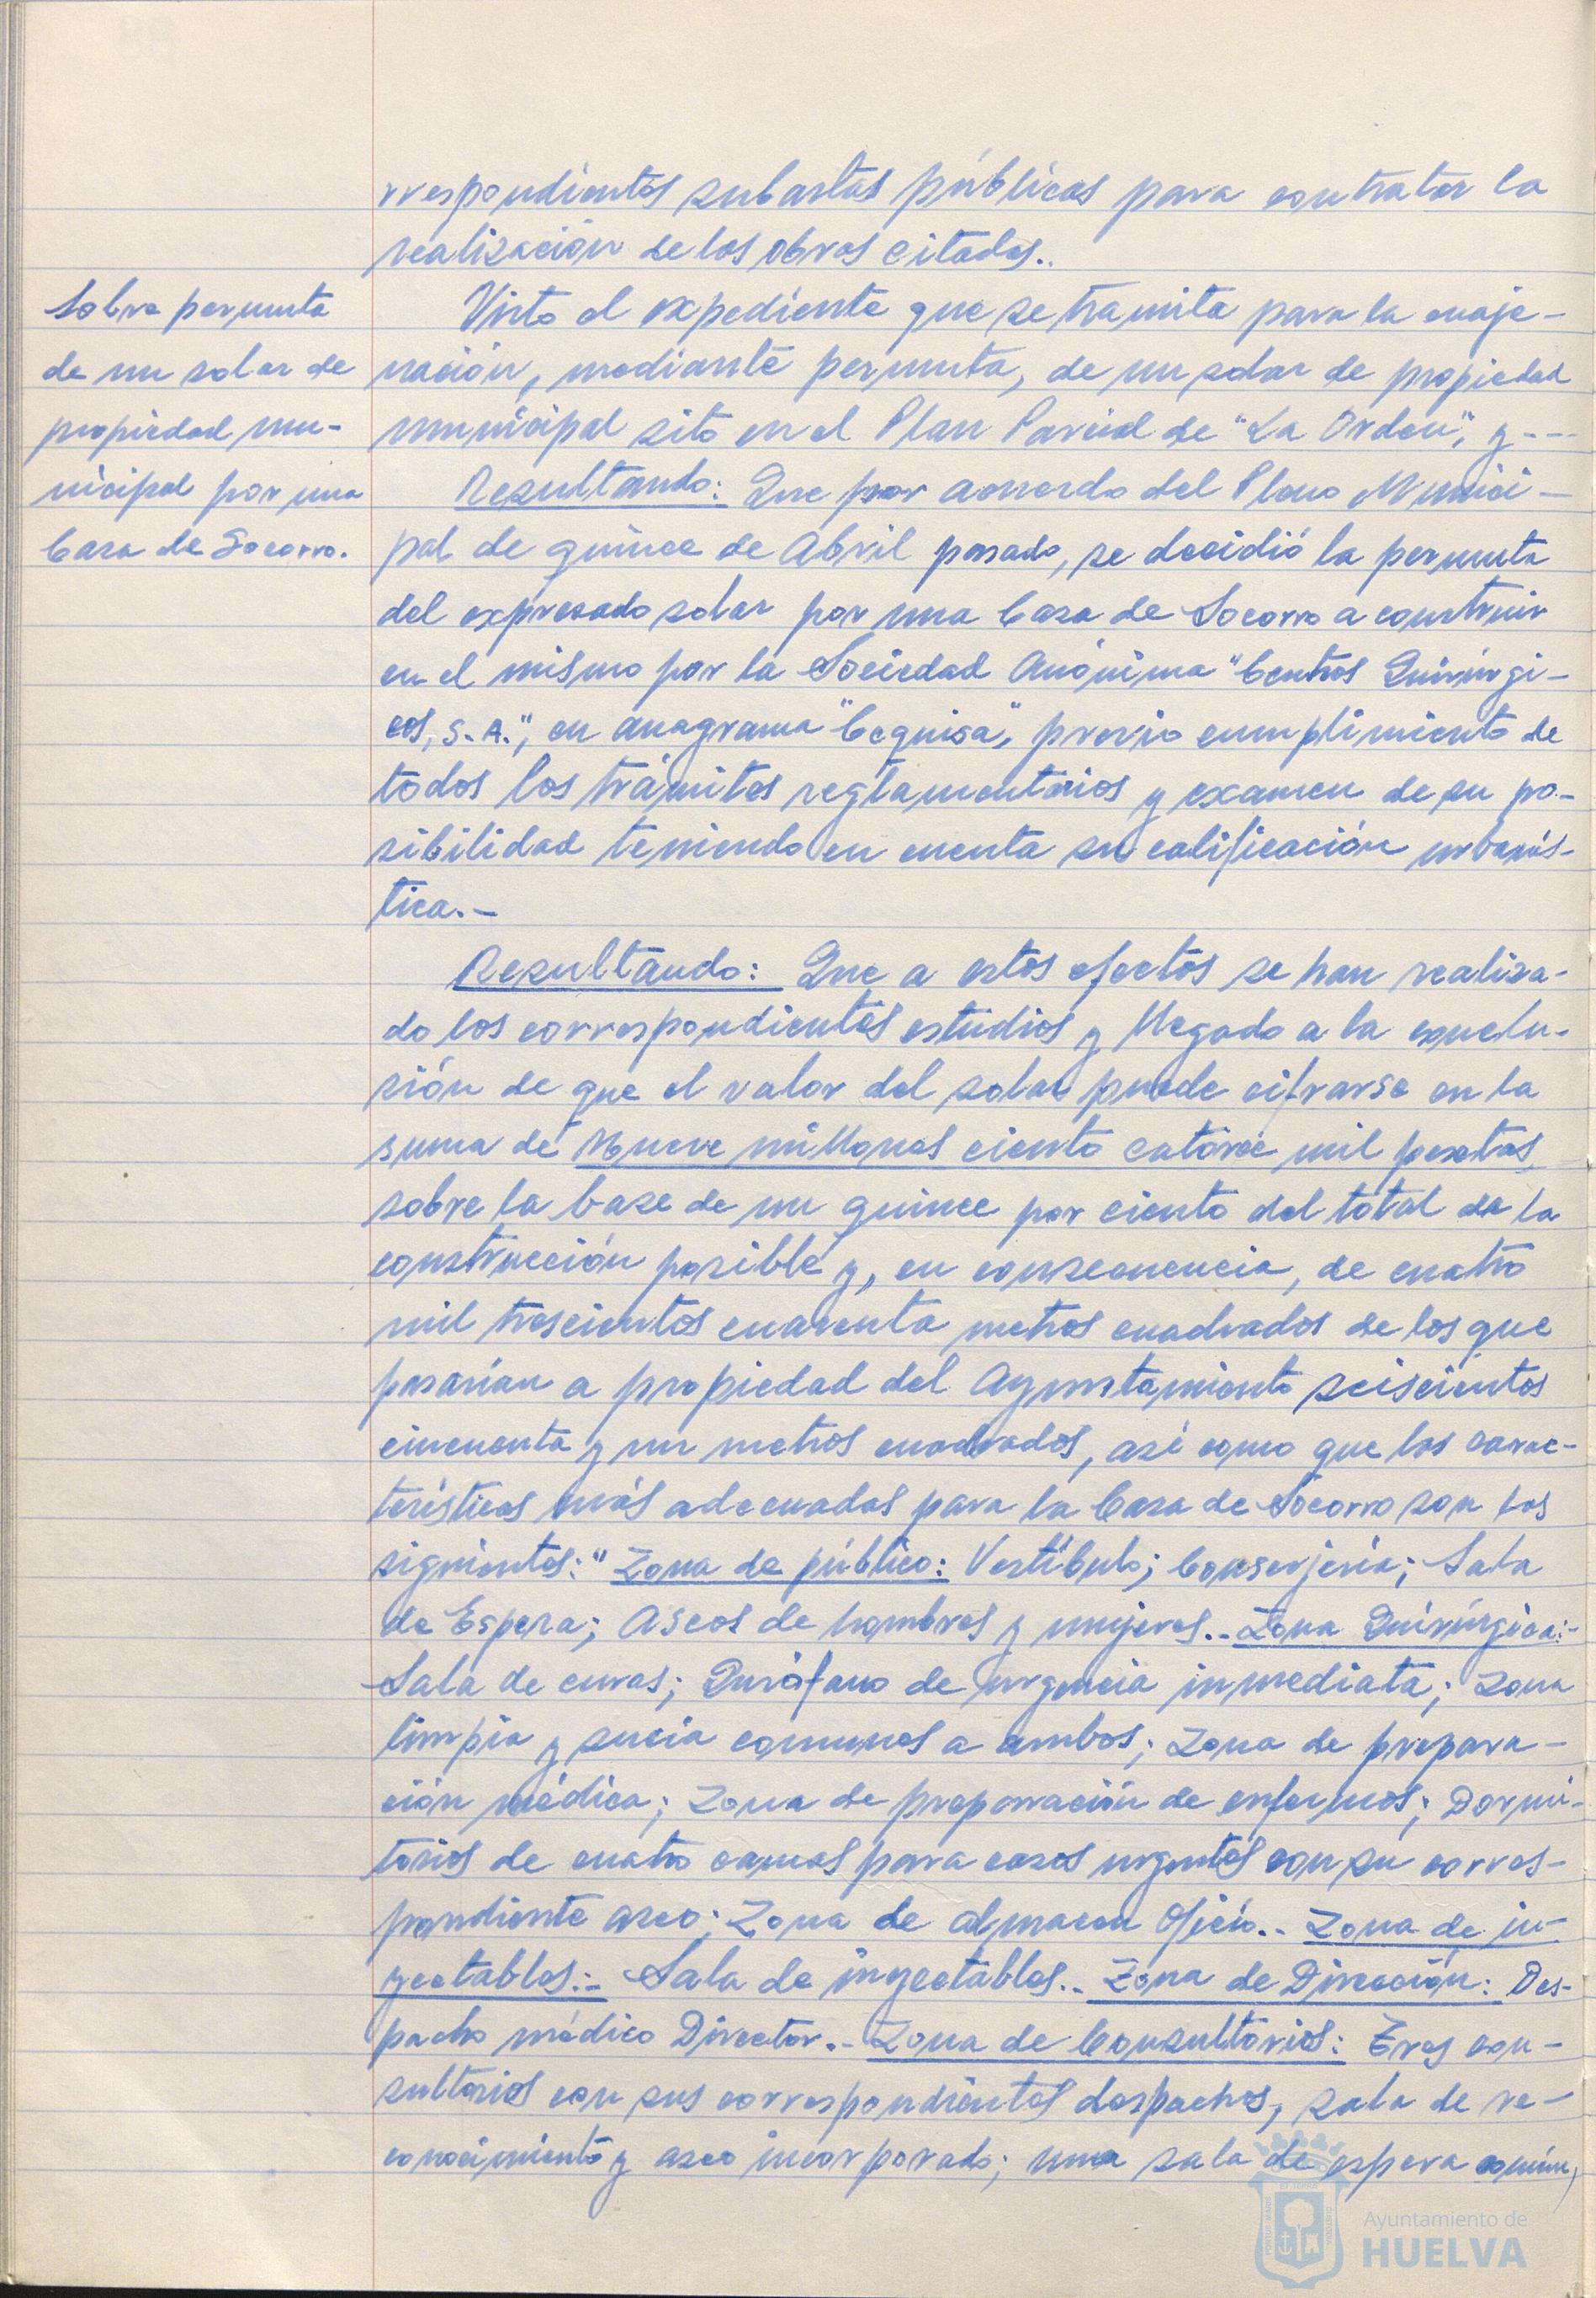 rrespondientes subastas públicas para contratar la
realización de las obras citadas..
Sobre permuta
de un solar de
propiedad mu-
nicipal por una
Casa de Socorro.
Visto el expediente que se tramita para la enaje-
nación, mediante permuta, de un solar de propiedad
municipal sito en el Plan Parcial de "La Orden", y ---
Resultando: Que por acuerdo del Pleno Munici-
pal de quince de Abril pasado, se decidió la permuta
del expresado solar por una Casa de Socorro a construir
en el mismo por la Sociedad Anónima "Centros Quirúrgi-
cos, S.A.", en anagrama "Cequisa", previo cumplimiento de
todos los trámites reglamentarios y examen de su po-
sibilidad teniendo en cuenta su calificación urbanís-
tica.-
Resultando: Que a estos efectos se han realiza-
do los correspondientes estudios y llegado a la conclu-
sión de que el valor del solar puede cifrarse en la
suma de Nueve millones ciento catorce mil pesetas,
sobre la base de un quince por ciento del total de la
construcción posible y, en consecuencia, de cuatro
mil trescientos cuarenta metros cuadrados de los que
pasarían a propiedad del Ayuntamiento seiscientos
cincuenta y un metros cuadrados, así como que las carac-
terísticas más adecuadas para la Casa de Socorro son las
siguientes: "Zona de público: Vestíbulo; Conserjería; Sala
de Espera; Aseos de hombres y mujeres.. Zona Quirúrgica:-
Sala de curas; Quirófano de urgencia inmediata; Zona
limpia y sucia comunes a ambos; Zona de prepara-
ción médica; Zona de preparación de enfermos; Dormi-
torios de cuatro camas para casos urgentes con su corres-
pondiente aseo; Zona de almacen Oficio.. Zona de in-
yectables:- Sala de inyectables.. Zona de Dirección: Des-
pacho médico Director.- Zona de Consultorios: Tres con-
sultorios con sus correspondientes despachos, sala de re-
conocimiento y aseo incorporado; una sala de espera común,
Ayuntamiento de
HUELVA